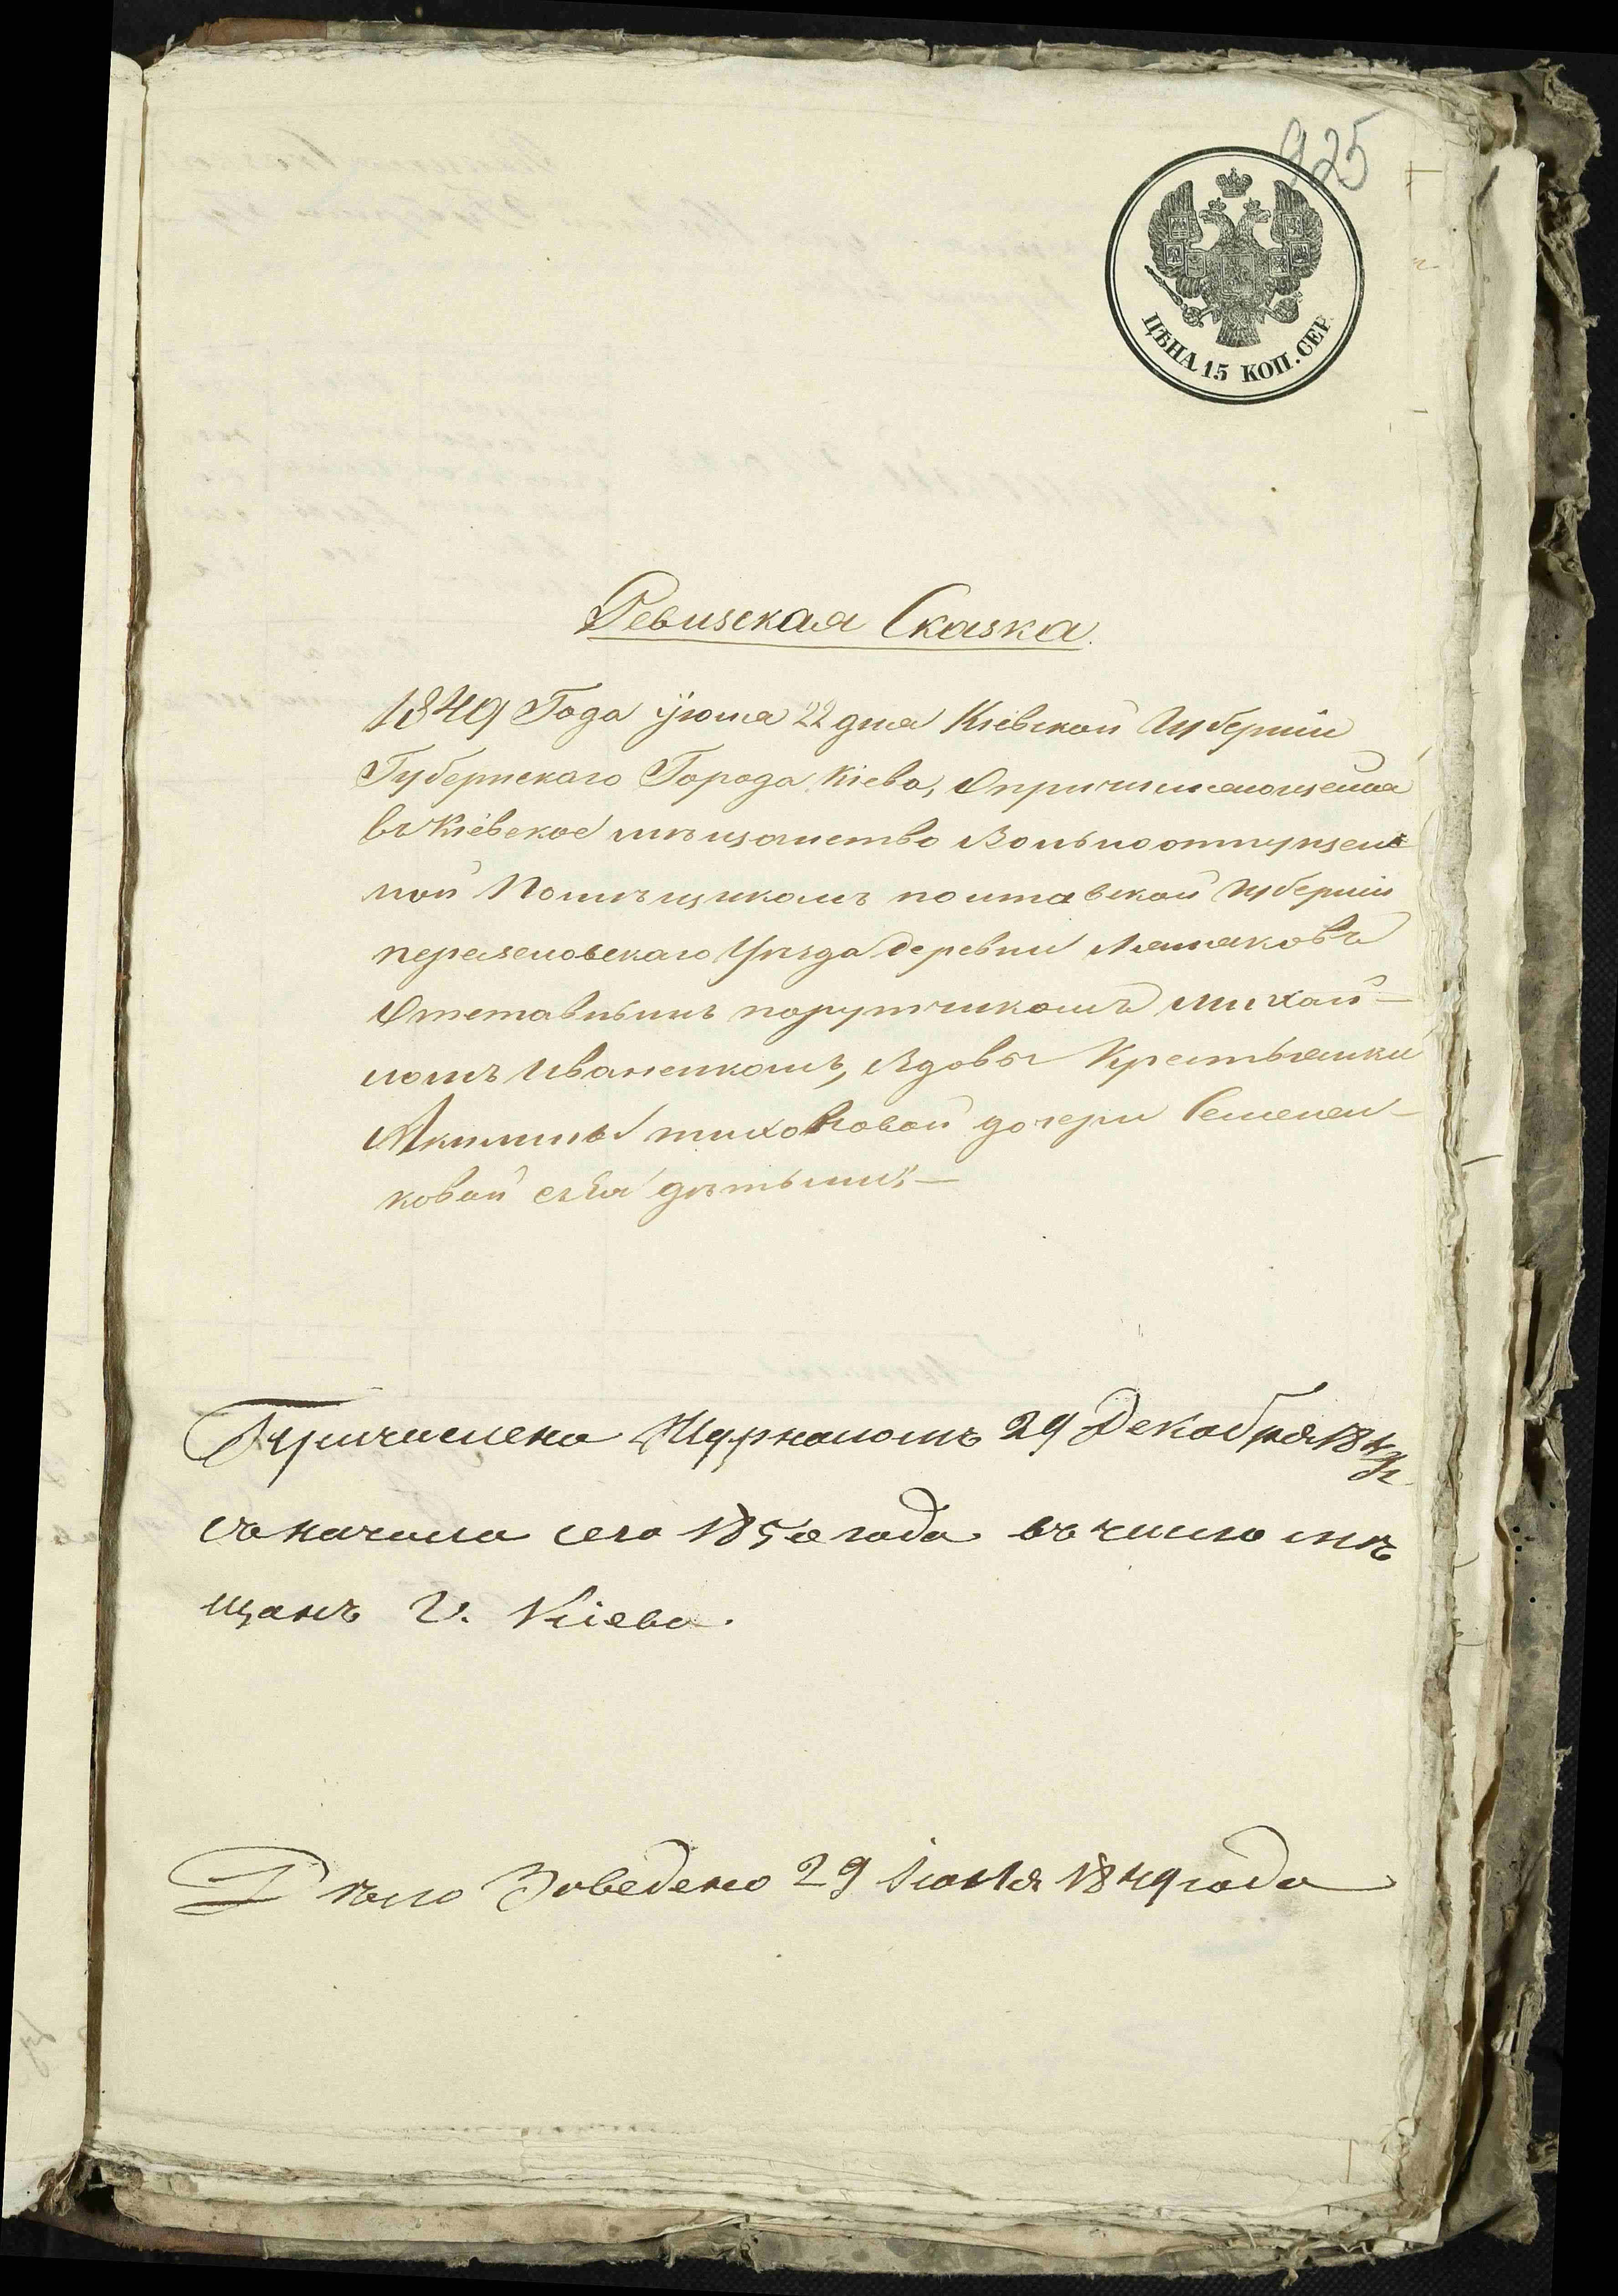 925
ЦѢНА 15 КОП. СЕР.
Ревизская Сказка.
1849 Года Іюня 22 дня Кіевской Губерніи
Губернскаго Города Кіева, О причисляющейся
въ Кіевское мѣщанство Вольноотпущен
ной Помѣщикомъ полтавской Губерніи
переяславскаго Уѣзда деревни
Отставнымъ порутчикомъ Михай-
ломъ Иваненкомъ, Вдовы Крестьянки
Акилины тихоновой дочери Семенен-
ковой съ Ея дѣтьми;—
Причислена Журналомъ 29 Декабря 1849 г.
съ начала сего 1850 года въ число мѣ
щанъ г. Кіева.
Дѣло Заведено 29 Іюня 1849 года